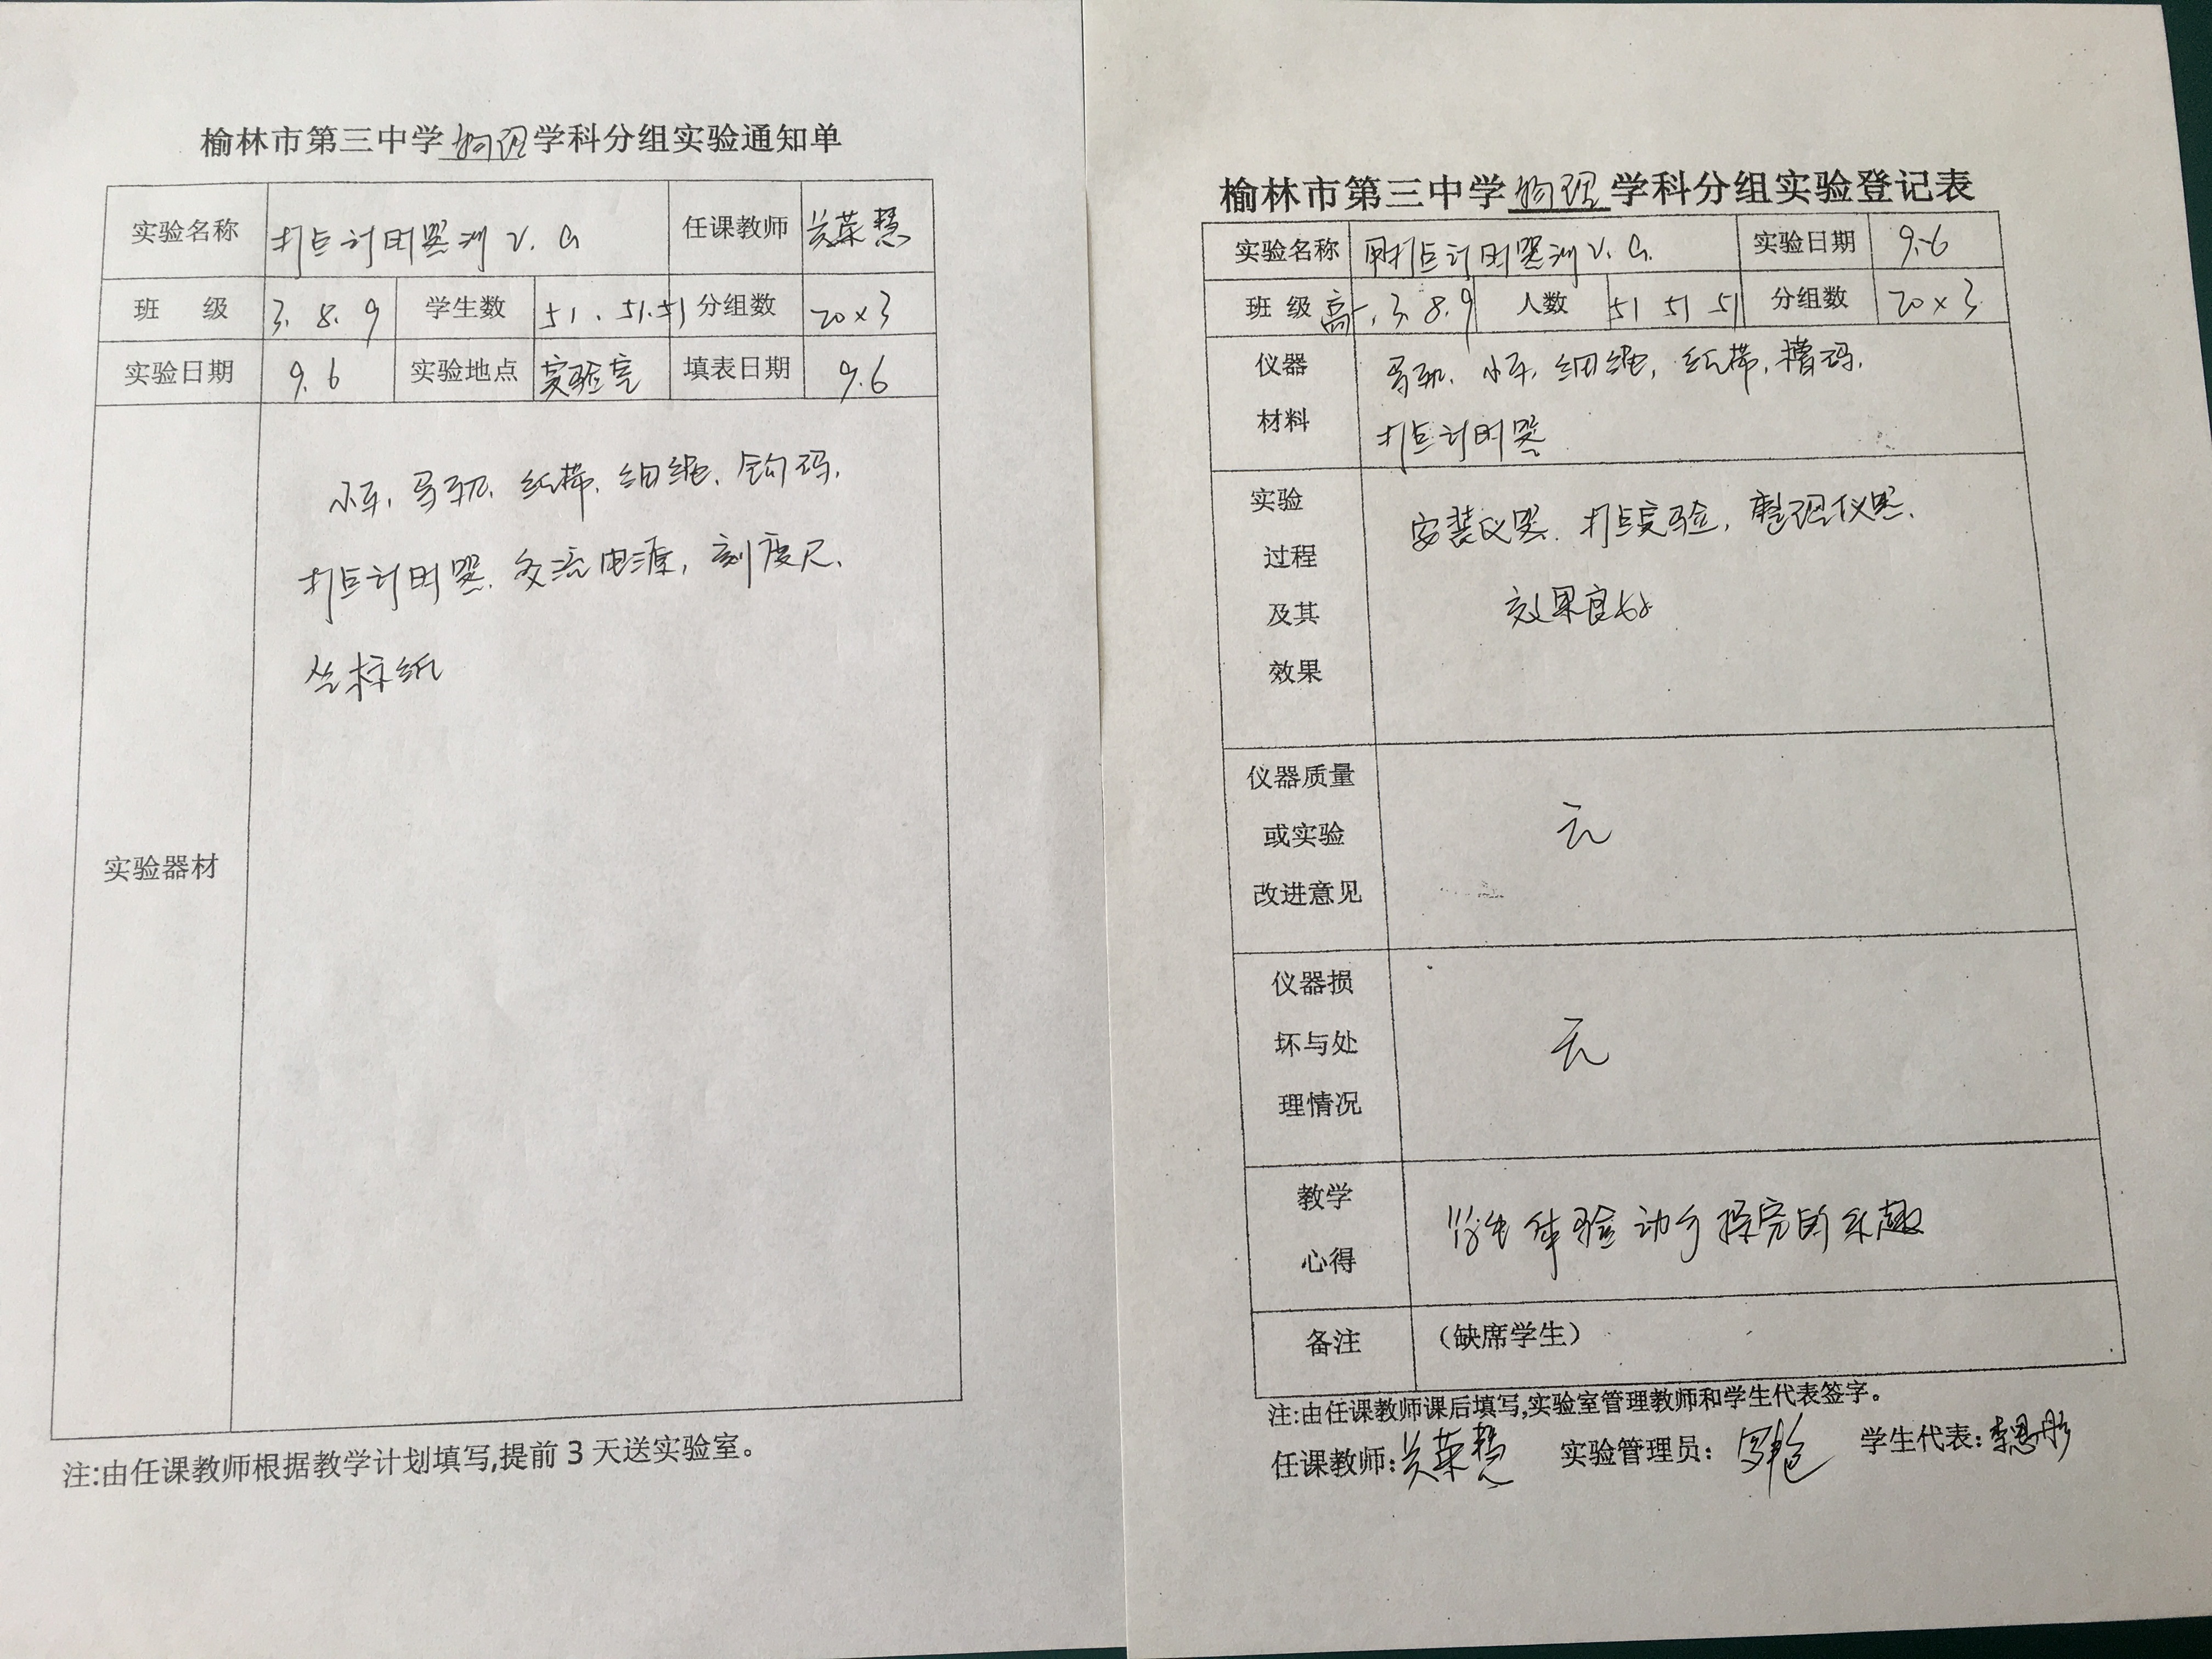 榆林市第三中学物理学科分组实验通知单
实验名称 打点计时器测 v. a 任课教师 荣慧
班 级 3. 8. 9 学生数 51. 51. 51 分组数 20×3
实验日期 9.6 实验地点 实验室 填表日期 9.6
实验器材
小车. 导轨. 纸带. 细绳. 钩码.
打点计时器. 交流电源, 刻度尺.
坐标纸
注:由任课教师根据教学计划填写,提前3天送实验室。
榆林市第三中学物理学科分组实验登记表
实验名称 用打点计时器测 v. a. 实验日期 9.6
班 级 高一. 3. 8. 9 人数 51 51 51 分组数 20×3
仪器
材料
导轨. 小车. 细绳, 纸带, 槽码.
打点计时器
实验
过程
及其
效果
安装仪器. 打点实验, 整理仪器.
效果良好
仪器质量
或实验
改进意见
无
仪器损
坏与处
理情况
无
教学
心得
学生体验动手探究的乐趣
备注 (缺席学生)
注:由任课教师课后填写,实验室管理教师和学生代表签字。
任课教师: 荣慧 实验管理员: 学生代表: 李思彤